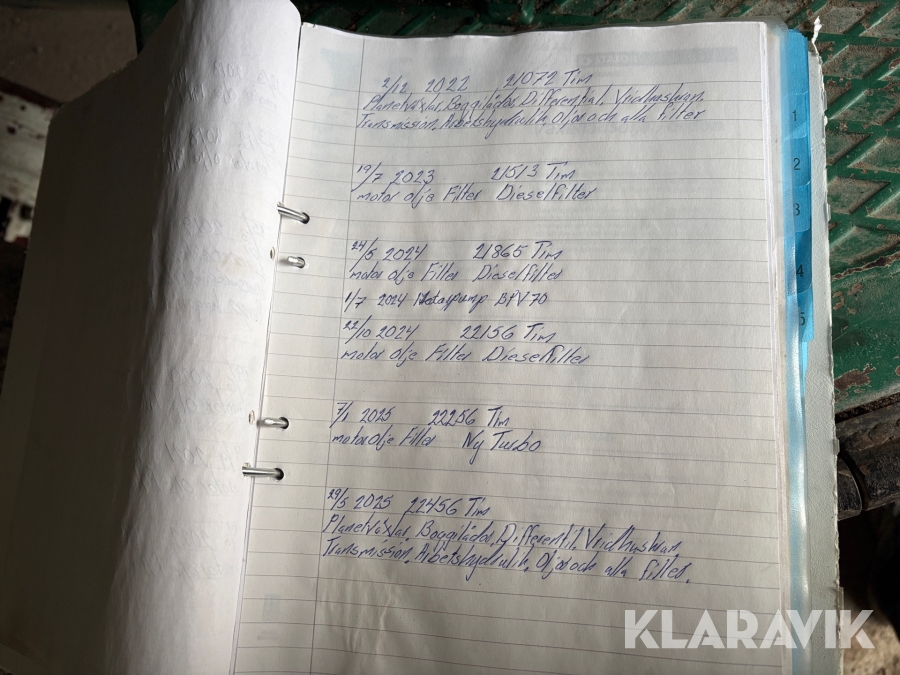 2/12, 2022 21072 Tim
Planetväxlar, Boggilådor, Differential, Vridhuskran,
Transmission, Arbetshydralik, Oljor och alla filter
19/7 2023 21513 Tim
motor olje Filter Dieselfilter
24/5 2024 21865 Tim
motor olje Filter Dieselfilter
1/7 2024 BPV70
22/10 2024 22156 Tim
motor olje Filter Dieselfilter
7/1 2025 22256 Tim
motor olje Filter Ny Turbo
29/5 2025 22456 Tim
Planetväxlar, Boggilådor, Differentil, Vridhuskran,
Transmission, Arbetshydralik, Oljor och alla filter.
1
2
3
4
5
KLARAVIK